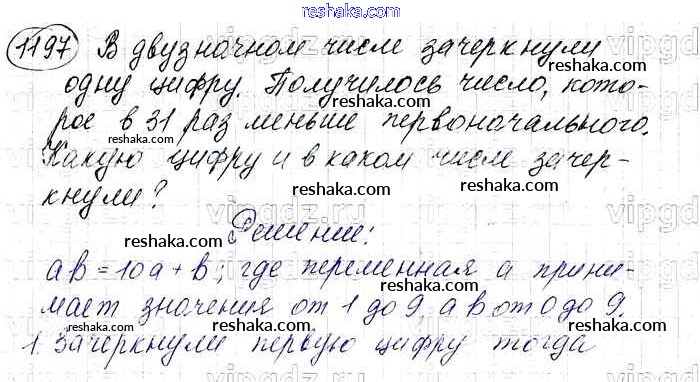 reshaka.com
1197 В двузначном числе зачеркнули
reshaka.com
одну цифру. Получилось число, кото-
reshaka.com reshaka.com
рое в 31 раз меньше первоначального.
reshaka.com reshaka.com
Какую цифру и в каком числе зачер-
reshaka.com
кнули?
vipgdz.ru
Решение:
reshaka.com reshaka.com
ab = 10a + b; где переменная a прини-
reshaka.com reshaka.com
мает значения от 1 до 9, а b от 0 до 9.
1. Зачеркнули первую цифру тогда
reshaka.com